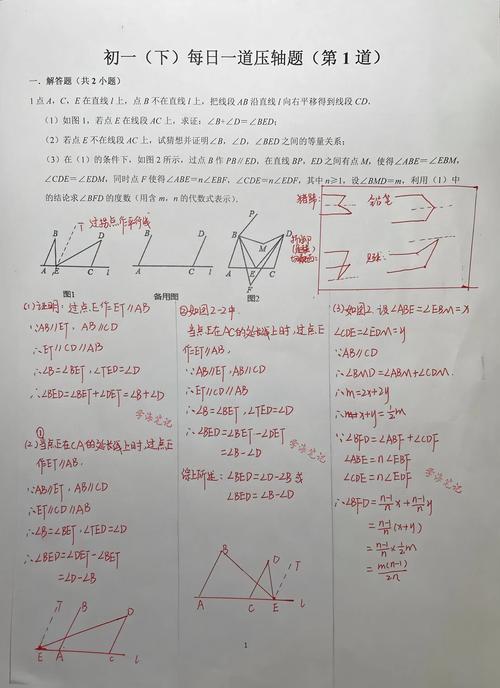 初一（下）每日一道压轴题（第 1 道）
一．解答题（共 2 小题）
1 点 A，C，E 在直线 l 上，点 B 不在直线 l 上，把线段 AB 沿直线 l 向右平移得到线段 CD．
（1）如图 1，若点 E 在线段 AC 上，求证：∠B+∠D＝∠BED；
（2）若点 E 不在线段 AC 上，试猜想并证明∠B，∠D，∠BED 之间的等量关系；
（3）在（1）的条件下，如图 2 所示，过点 B 作 PB∥ED，在直线 BP，ED 之间有点 M，使得∠ABE＝∠EBM，
∠CDE＝∠EDM，同时点 F 使得∠ABE＝n∠EBF，∠CDE＝n∠EDF，其中 n≥1，设∠BMD＝m，利用（1）中
的结论求∠BFD 的度数（用含 m，n 的代数式表示）．
T 过拐点作平行线
猪蹄:
铅笔
B
D
A
E
C
l
图1
备用图
P
B
D
M
A
E
C
l
F
图2
(1)证明：过点E作ET∥AB
∵AB∥ET，AB∥CD
∴ET∥CD∥AB
∴∠B=∠BET，∠TED=∠D
∴∠BED=∠BET+∠DET=∠B+∠D
学海笔记
①
(2)当点E在CA的延长线上时,过点E
作ET∥AB.
∵AB∥ET，AB∥CD
∴ET∥CD∥AB
∴∠B=∠BET，∠TED=∠D
∴∠BED=∠DET-∠BET
=∠D-∠B
T
B
D
E
A
C
l
②如图2-2中.
当点E在AC的延长线上时,过点E
作ET∥AB.
∵AB∥ET，AB∥CD
∴ET∥CD∥AB
∴∠B=∠BET，∠TED=∠D
∴∠BED=∠BET-∠DET
=∠B-∠D
学海笔记
综上所述：∠BED=∠D-∠B 或
∠BED=∠B-∠D
B
D
T
A
C
E
l
(3)如图2. 设∠ABE=∠EBM=x
∠CDE=∠EDM=y
∵AB∥CD
∴∠BMD=∠ABM+∠CDM.
∴m=2x+2y
∴x+y=½m
∵∠BFD=∠ABF+∠CDF
∠ABE=n∠EBF
∠CDE=n∠EDF
学海笔记
∴∠BFD=(n-1)/n x+(n-1)/n y
=(n-1)/n (x+y)
=(n-1)/n×½m
=m(n-1)/2n
1